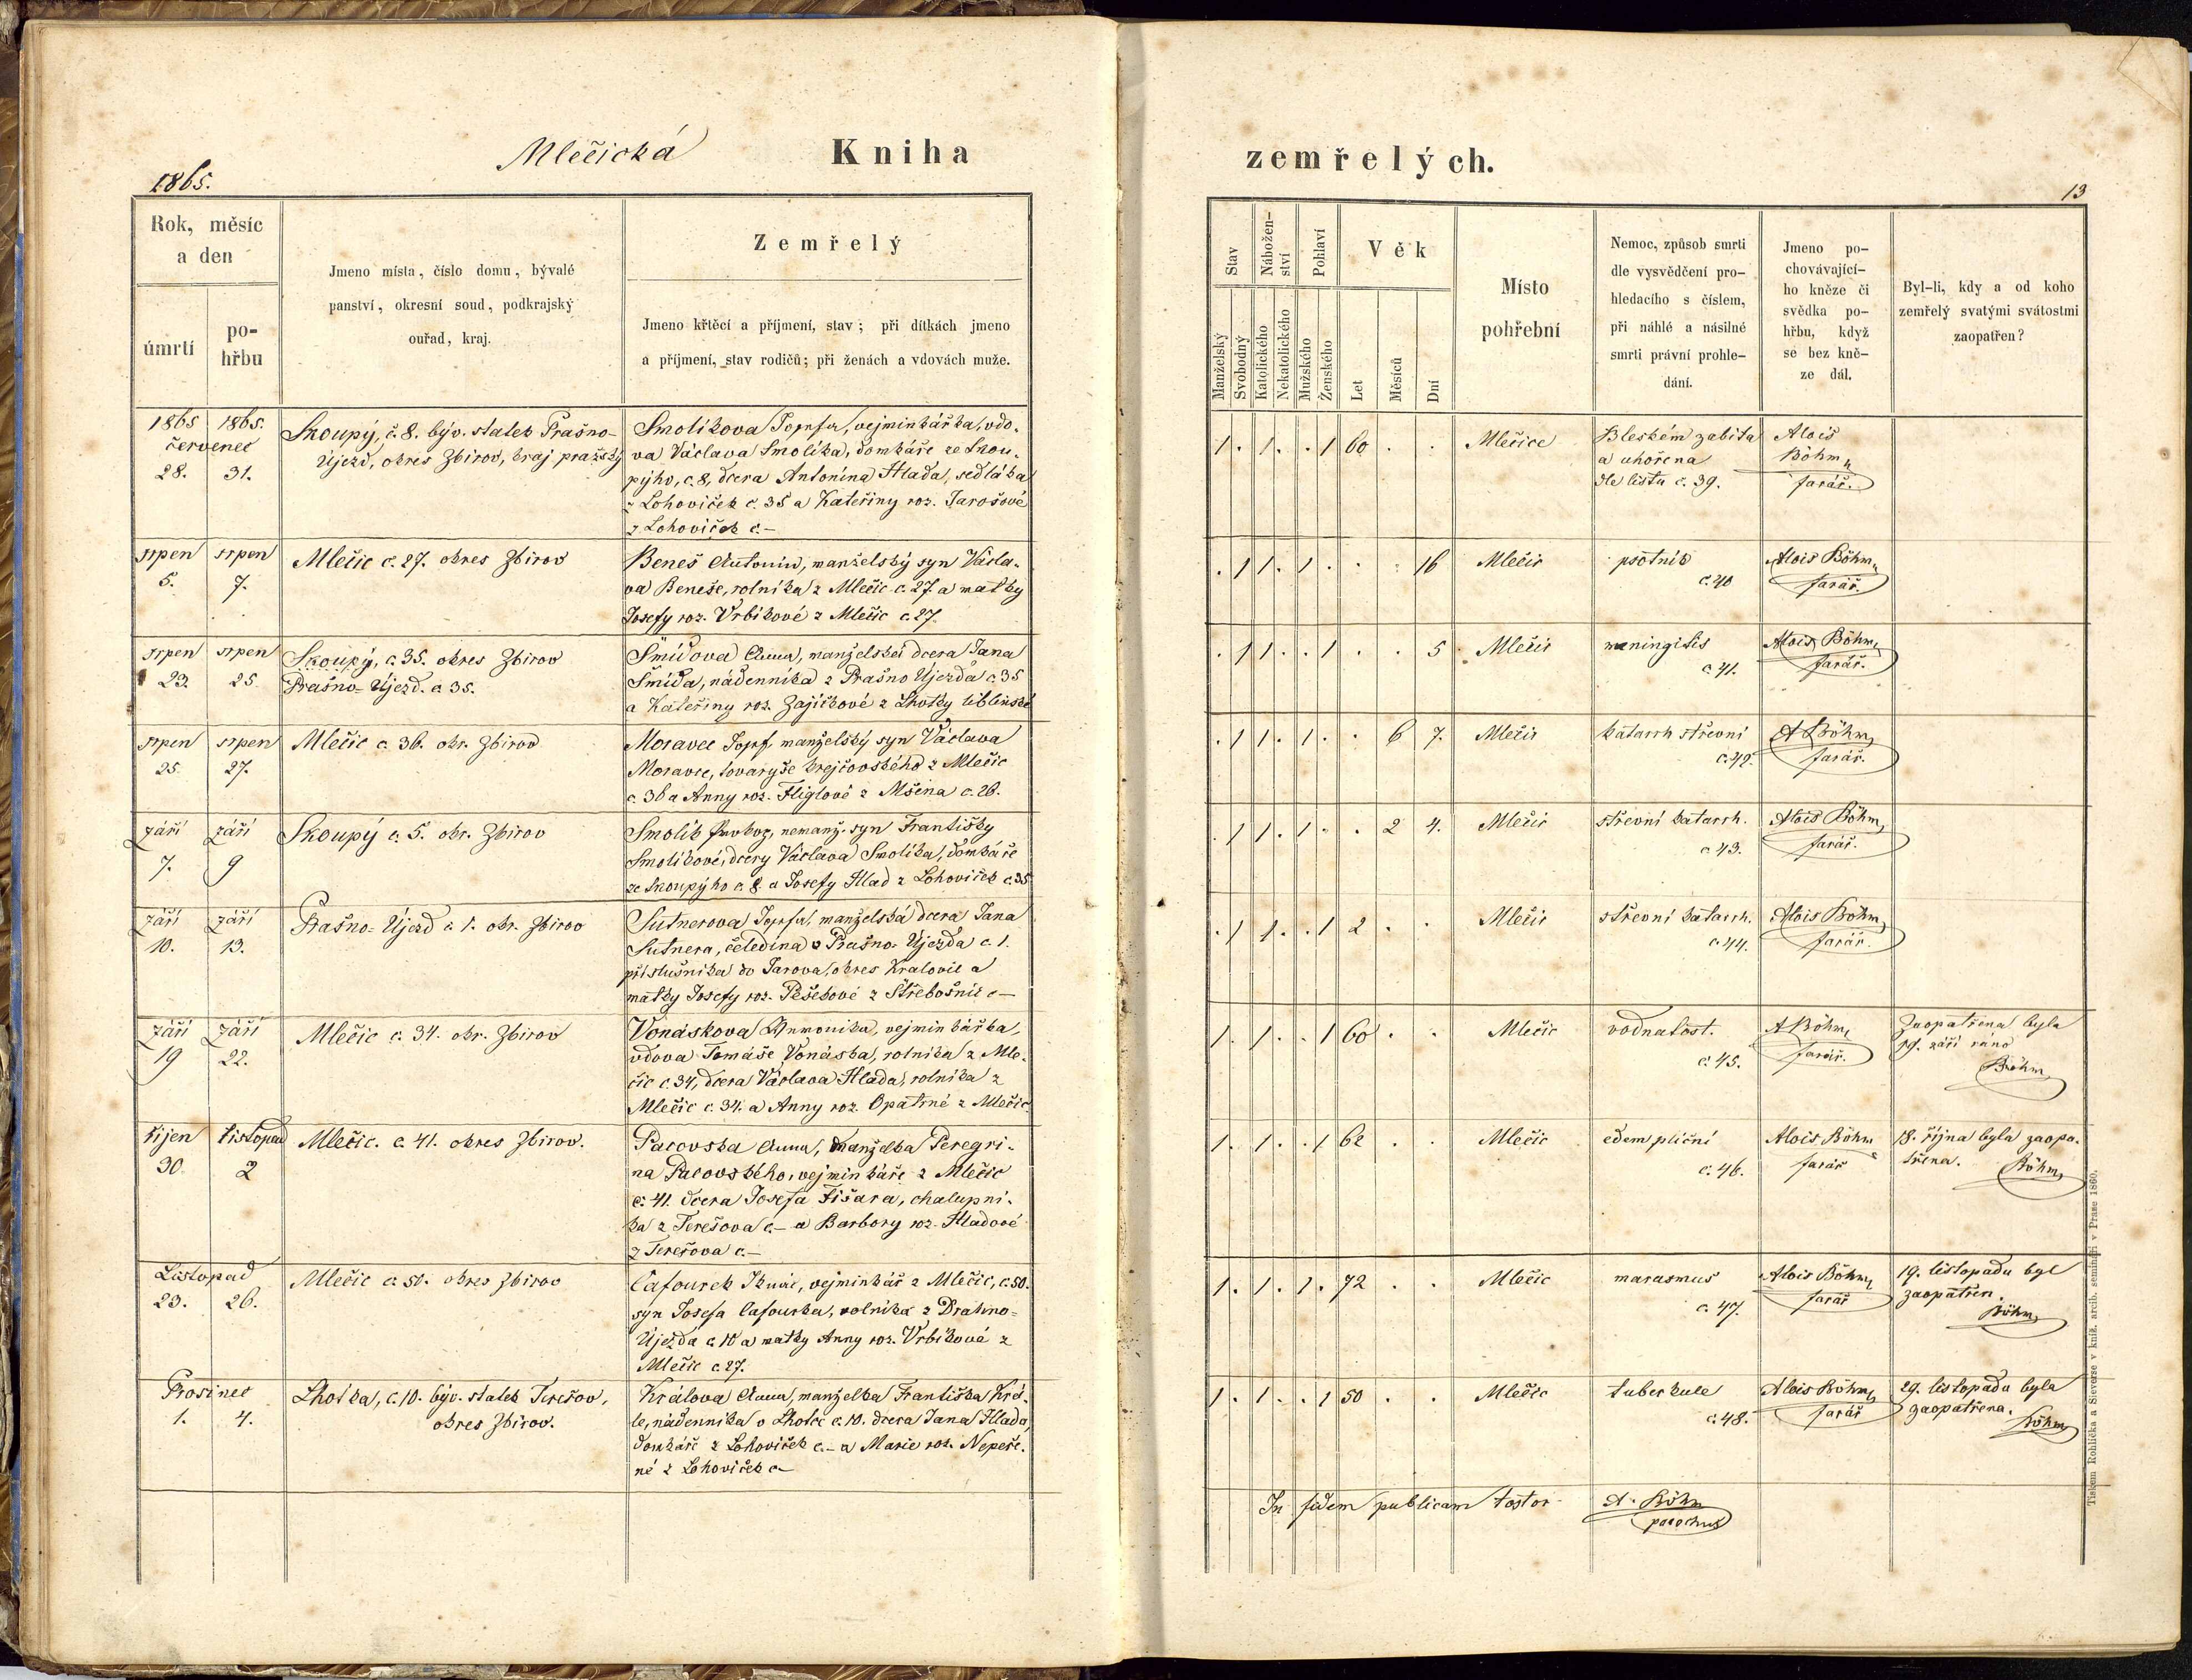 Mlečická Kniha zemřelých.
1865.
13
Rok, měsíc
a den
úmrtí
po-
hřbu
Jmeno místa, číslo domu, bývalé
panství, okresní soud, podkrajský
ouřad, kraj.
Zemřelý
Jmeno křtěcí a příjmení, stav; při dítkách jmeno
a příjmení, stav rodičů; při ženách a vdovách muže.
Stav
Manželský
Svobodný
Nábožen-
ství
Katolického
Nekatolického
Pohlaví
Mužského
Ženského
Věk
Let
Měsíců
Dní
Místo
pohřební
Nemoc, způsob smrti
dle vysvědčení pro-
hledacího s číslem,
při náhlé a násilné
smrti právní prohle-
dání.
Jmeno po-
chovávající-
ho kněze či
svědka po-
hřbu, když
se bez kně-
ze dál.
Byl-li, kdy a od koho
zemřelý svatými svátostmi
zaopatřen?
1865 1865.
červenec
28. 31.
Skoupý, č. 8. býv. statek Prašno-
Újezd, okres Zbirov, kraj pražský
Smolíkova Josefa, vejminkářka, vdo-
va Václava Smolíka, domkáře ze Skou-
pýho, c. 8, dcera Antonína Hlada, sedláka
z Lohoviček c. 35 a Kateřiny roz. Jarošové
z Lohoviček c.—
1. 1. . 1 60 . . Mlečice
Bleskem zabita
a uhořena
dle listu č. 39.
Alois
Böhm
farář.
srpen srpen
5. 7.
Mlečic c. 27. okres Zbirov
Beneš Antonín, manželský syn Václa-
va Beneše, rolníka z Mlečic c. 27 a matky
Josefy roz. Vrbíkové z Mlečic c. 27.
. 1 1. 1. . . 16 Mlečic
psotník
c. 40
Alois Böhm
farář.
srpen srpen
23. 25.
Skoupý, c. 35. okres Zbirov
Prašno-Újezd. c. 35.
Šmídova Anna, manželská dcera Jana
Šmída, nádenníka z Prašno Újezda c. 35
a Kateřiny roz. Zajíčkové z Lhotky liblínské
. 1 1. . 1 . . 5 Mlečic
meningitis
c. 41.
Alois Böhm
farář.
srpen srpen
25. 27.
Mlečic c. 36. okr. Zbirov
Moravec Josef, manželský syn Václava
Moravce, tovaryše krejčovského z Mlečic
c. 36 a Anny roz. Fliglové z Mšena c. 26.
. 1 1. 1. . 6 7. Mlečic
katarrh střevní
c. 42.
A Böhm
farář.
září září
7. 9
Skoupý c. 5. okr. Zbirov
Smolík Prokop, nemanž. syn Františky
Smolíkové, dcery Václava Smolíka, domkáře
ze Skoupýho c. 8 a Josefy Hlad z Lohoviček c. 35
. 1 1. 1. . 2 4. Mlečic
střevní katarrh.
c. 43.
Alois Böhm
farář.
září září
10. 13.
Prašno-Újezd c. 1. okr. Zbirov
Sutnerova Josefa, manželská dcera Jana
Sutnera, čeledína v Prašno-Újezda c. 1.
příslušníka do Jarova, okres Kralovic a
matky Josefy roz. Pešekové z Střebošnic c—
. 1 1. . 1 2 . . Mlečic
střevní katarrh.
c. 44.
Alois Böhm
farář.
září září
19 22.
Mlečic c. 34. okr. Zbirov
Vonáskova, vejminkářka,
vdova Tomáše Vonáska, rolníka z Mle-
čic c. 34, dcera Václava Hlada, rolníka z
Mlečic c. 34. a Anny roz. Opatrné z Mlečic
1. 1. . 1 60 . . Mlečic
vodnatost.
c. 45.
A Böhm
farář.
Zaopatřena byla
19. září ráno
Böhm
říjen listopad
30. 2
Mlečic. c. 41. okres Zbirov.
Pacovska Anna, manželka Peregri-
na Pacovského, vejminkáře z Mlečic
c. 41. dcera Josefa Fišara, chalupní-
ka z Terešova c.— a Barbory roz. Hladové
z Terešova c.—
1. 1. . 1 62 . . Mlečic
edem plíční
c. 46.
Alois Böhm
farář
18. října byla zaopa-
třena. Böhm
Listopad
23. 26.
Mlečic c. 50. okres Zbirov
Cafourek Ignác, vejminkář z Mlečic, c. 50.
syn Josefa Cafourka, rolníka z Drahno-
Újezda c. 10 a matky Anny roz. Vrbíkové z
Mlečic c. 27.
1. 1. 1. 72 . . Mlečic
marasmus
c. 47.
Alois Böhm
farář
19. listopadu byl
zaopatřen.
Böhm
Prosinec
1. 4.
Lhotka, c. 10. býv. statek Terešov,
okres Zbirov.
Králova Anna, manželka Františka Krá-
le, nádenníka v Lhotce c. 10. dcera Jana Hlada,
domkáře z Lohoviček c.— a Marie roz. Nepeře-
né z Lohoviček c—
1. 1. . 1 50 . . Mlečic
tuberkule
c. 48.
Alois Böhm
farář
29. listopadu byla
zaopatřena.
Böhm
In fidem publicam testor A. Böhm
parochus
Tiskem Rohlíčka a Sieverse v kniž. arcib. semináři v Praze 1860.